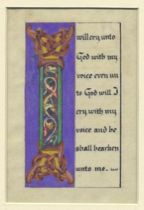 I will cry unto
God with my
voice even un
to God will I
cry with my
voice and he
shall hearken
unto me.